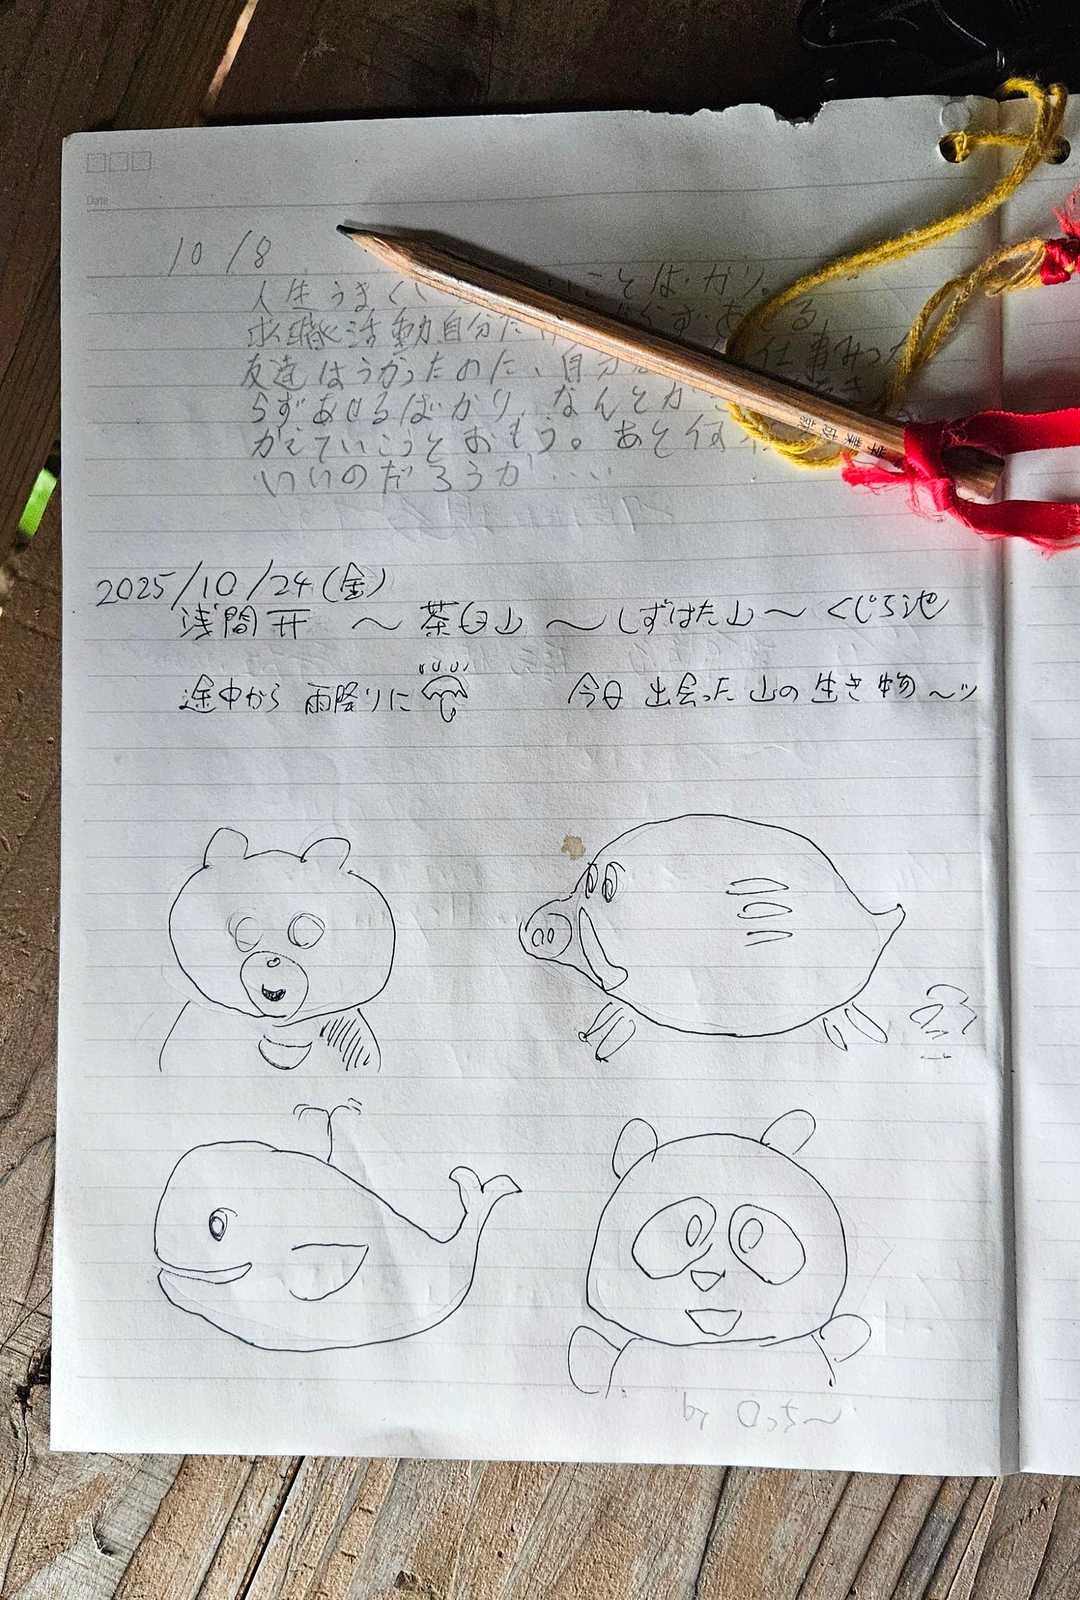 Date
10/8
人生うまくい ことばかり。
求職活動自分だ らずあせる。
友達はうかったのに、自分 仕事みつか
らずあせるばかり、なんとか
かえていこうとおもう。あと何
いいのだろうか・・・
2025/10/24(金)
浅間 〜 茶臼山 〜 しずはた山 〜 くじら池
途中から 雨降りに
今日 出会った 山の生き物 〜ッ